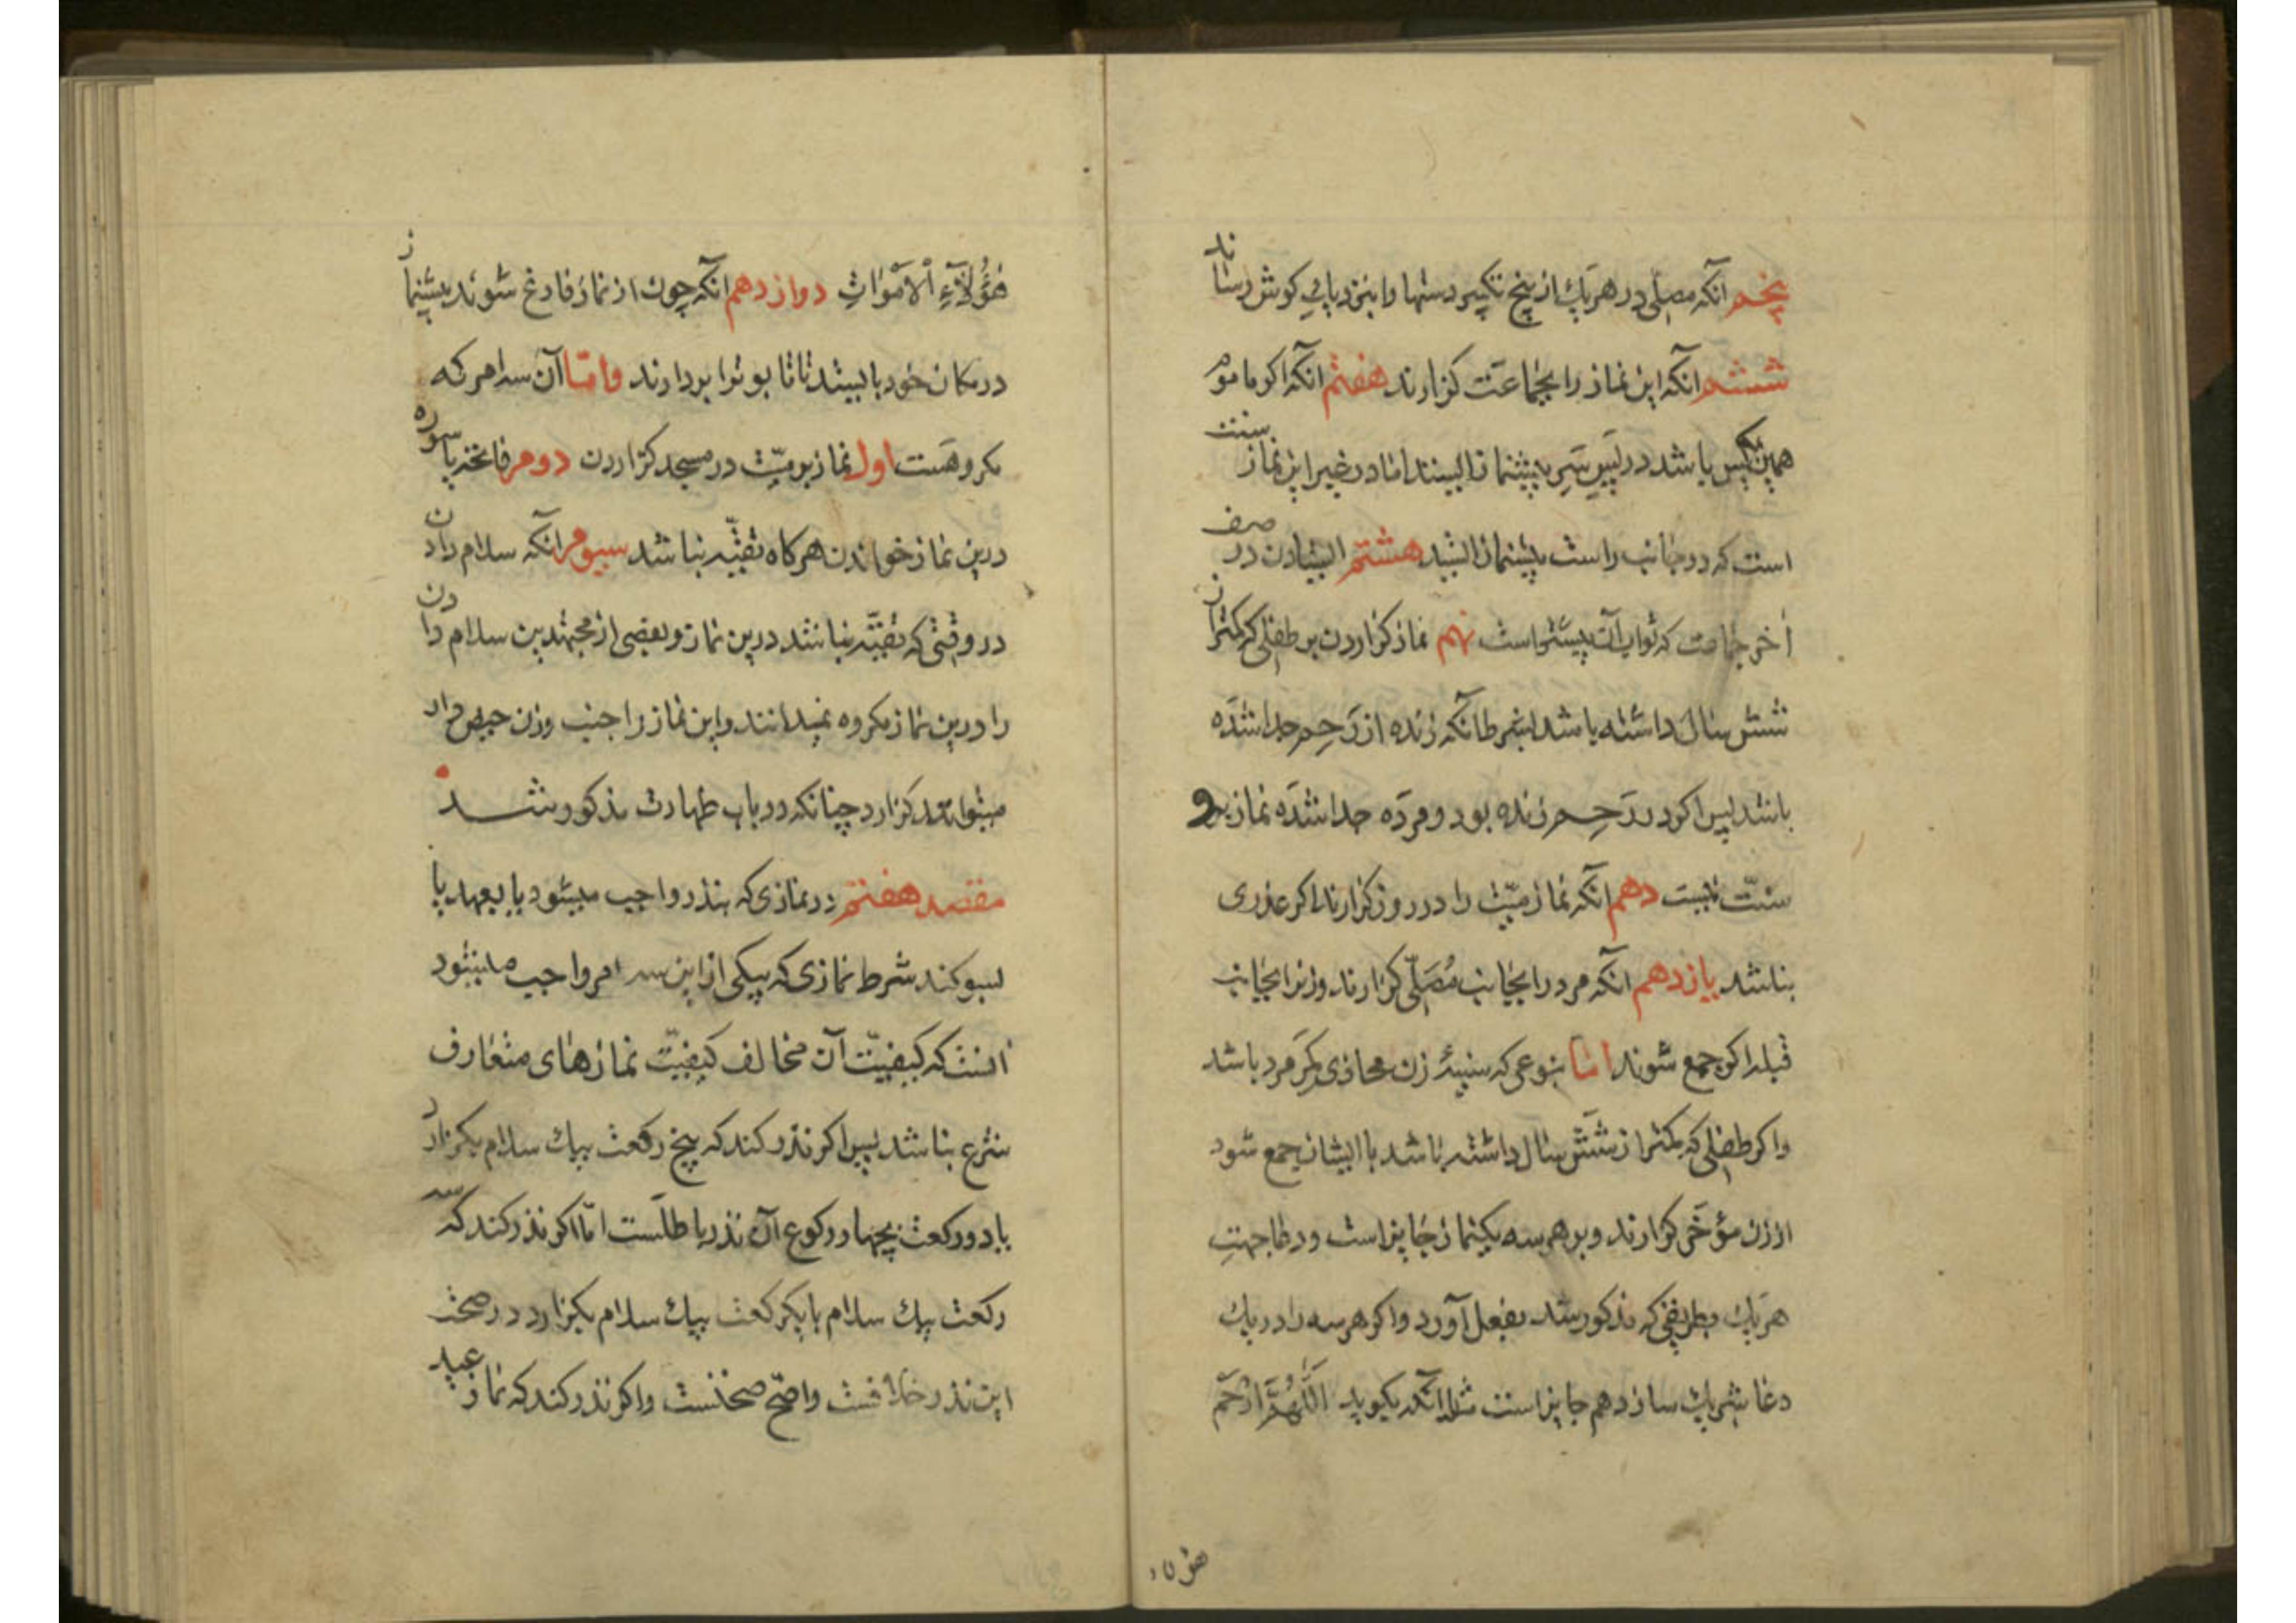 پنجم آنکه مصلی در هر یك از پنج تکبیر دستها را بنزدیاپی کوش رساند
ششم آنکه این نماز را بجماعت کزارند هفتم آنکه اکر ماموم
همین یکس باشد در پس سر پیشنماز ایستد اما در غیر این نماز سنت
است که در جانب راست پیشنماز ایستد هشتم ایستادن در صف
آخر جماعت که ثواب آن بیشتر است نهم نماز کزاردن بر طفلی که کمتر از
شش سال داشته باشد بشرط آنکه زنده از رحم جدا شده
باشد پس اکر در رحم زنده بود و مرده جدا شده نماز بر او
سنّت نیست دهم آنکه نماز میّت را در روز کزارند اکر عذری
نباشد یازدهم آنکه مرد را بجانب مُصَلّی کزارند و زنرا بجانب
قبله اکر جمع شوند امّا بنوعی که سینهٔ زن محاذی کمر مرد باشد
و اکر طفلی که کمتر از شش سال داشته باشد با ایشان جمع شود
از زن مؤخّر کزارند و بر هر سه یکنماز جایز است و دعا جهت
هر یك بطریقی که مذکور شد بفعل آورد و اکر هر سه را در یك
دعا شریك سازد هم جایز است مثلا آنکه بکوید اَللّهُمَّ ارْحَمْ
هؤلا
هٰؤُلآءِ اْلاَمْوٰاتِ دوازدهم آنکه چون از نماز فارغ شوند پیشنماز
در مکان خود بایستد تا تابوترا بردارند و امّا آن سه امر که
مکروهست اول نماز بر میّت در مسجد کزاردن دوم فاتحه یا سوره
درین نماز خواندن هرکاه تقیّه نباشد سیوم آنکه سلام دادن
در وقتی که تقیّه نباشد درین نماز و بعضی از مجتهدین سلام دادن
را درین نماز مکروه نمیدانند و این نماز را جنب و زن حیض دار
میتوانند کزارد چنانکه در باب طهارت مذکور شد
مقصد هفتم در نمازی که بنذر واجب میشود یا بعهد یا
بسوکند شرط نمازی که بیکی از این سه امر واجب میشود
آنست که کیفیّت آن مخالف کیفیّت نمازهای متعارف
شرع نباشد پس اکر نذر کند که پنج رکعت بیك سلام بکزارد
یا دو رکعت بچهار رکوع آن نذر باطلست امّا اکر نذر کند که سه
رکعت بیك سلام یا یکرکعت بیك سلام بکزارد در صحت
این نذر خلافست و اصحّ صحتست و اکر نذر کند که نماز عید